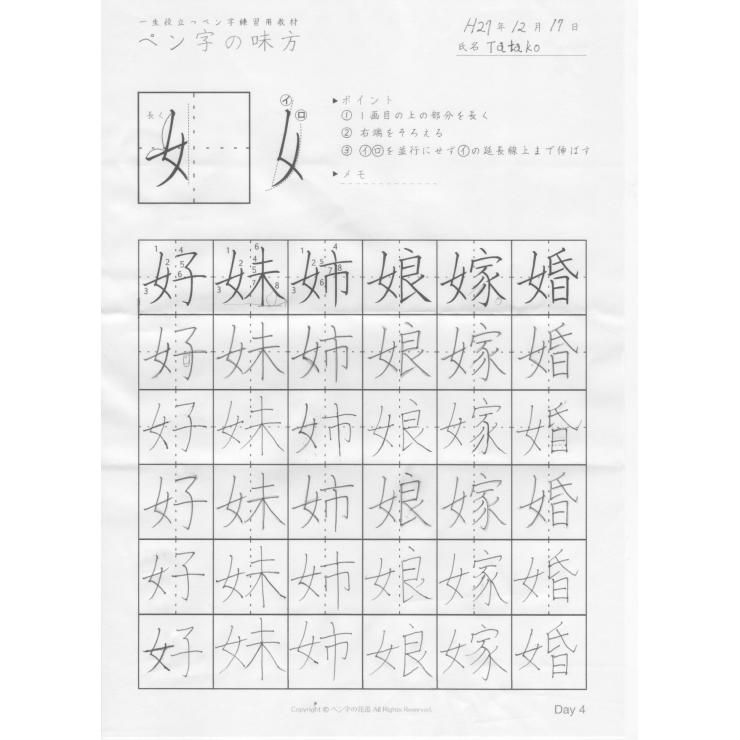 一生役立つペン字練習用教材
ペン字の味方
H27年12月17日
氏名 Tatako
長く
イ
ロ
▶ポイント
① 1画目の上の部分を長く
② 右端をそろえる
③ イロを並行にせずイの延長線上まで伸ばす
▶メモ
好 妹 姉 娘 嫁 婚
好 妹 姉 娘 嫁 婚
好 妹 姉 娘 嫁 婚
好 妹 姉 娘 嫁 婚
好 妹 姉 娘 嫁 婚
好 妹 姉 娘 嫁 婚
Copyright © ペン字の花道 All Rights Reserved.
Day 4